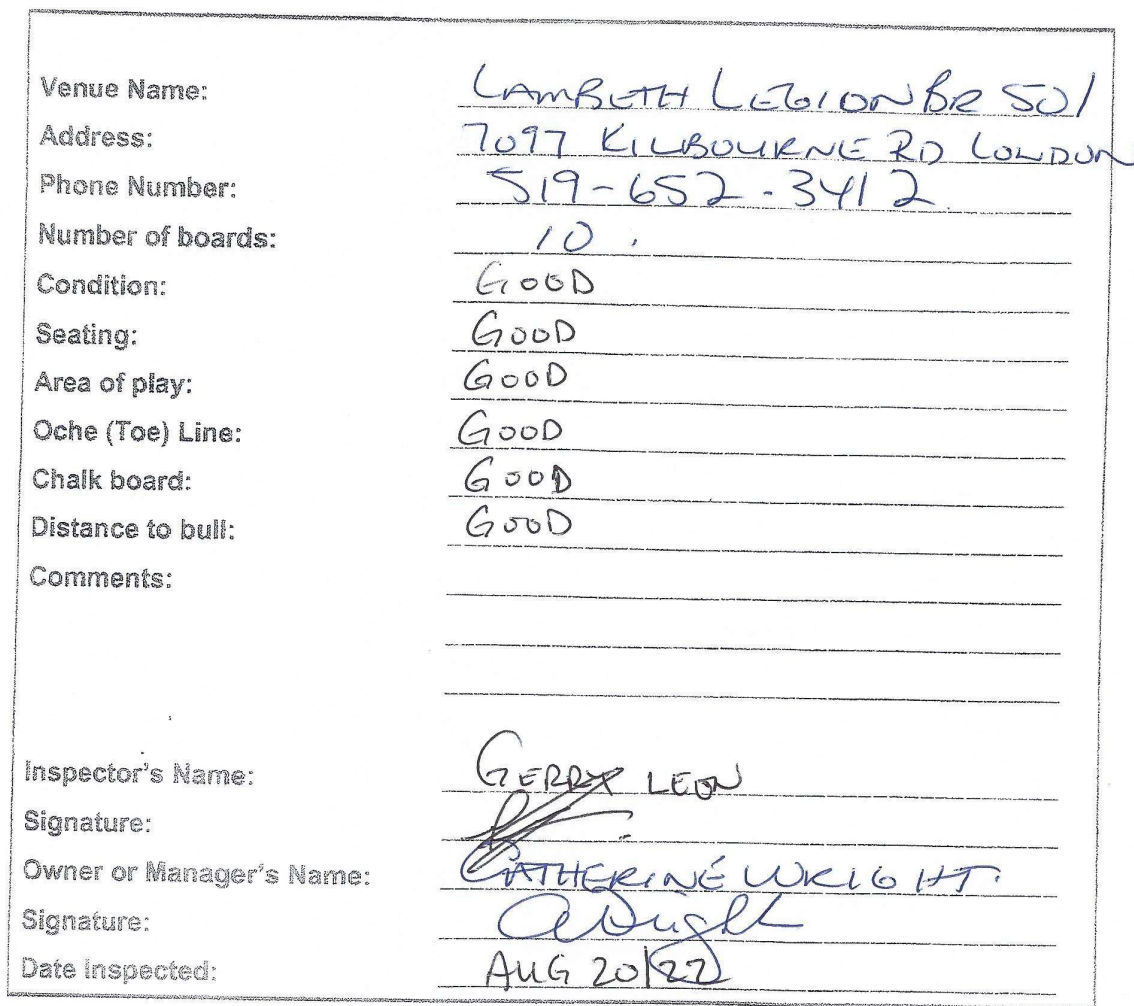 Venue Name: LAMBETH LEGION BR 501
Address: 7097 KILBOURNE RD LONDON
Phone Number: 519-652-3412
Number of boards: 10.
Condition: GOOD
Seating: GOOD
Area of play: GOOD
Oche (Toe) Line: GOOD
Chalk board: GOOD
Distance to bull: GOOD
Comments:
Inspector's Name: GERRY LEON
Signature:
Owner or Manager's Name: CATHERINE WRIGHT.
Signature: CWright
Date Inspected: AUG 20/22